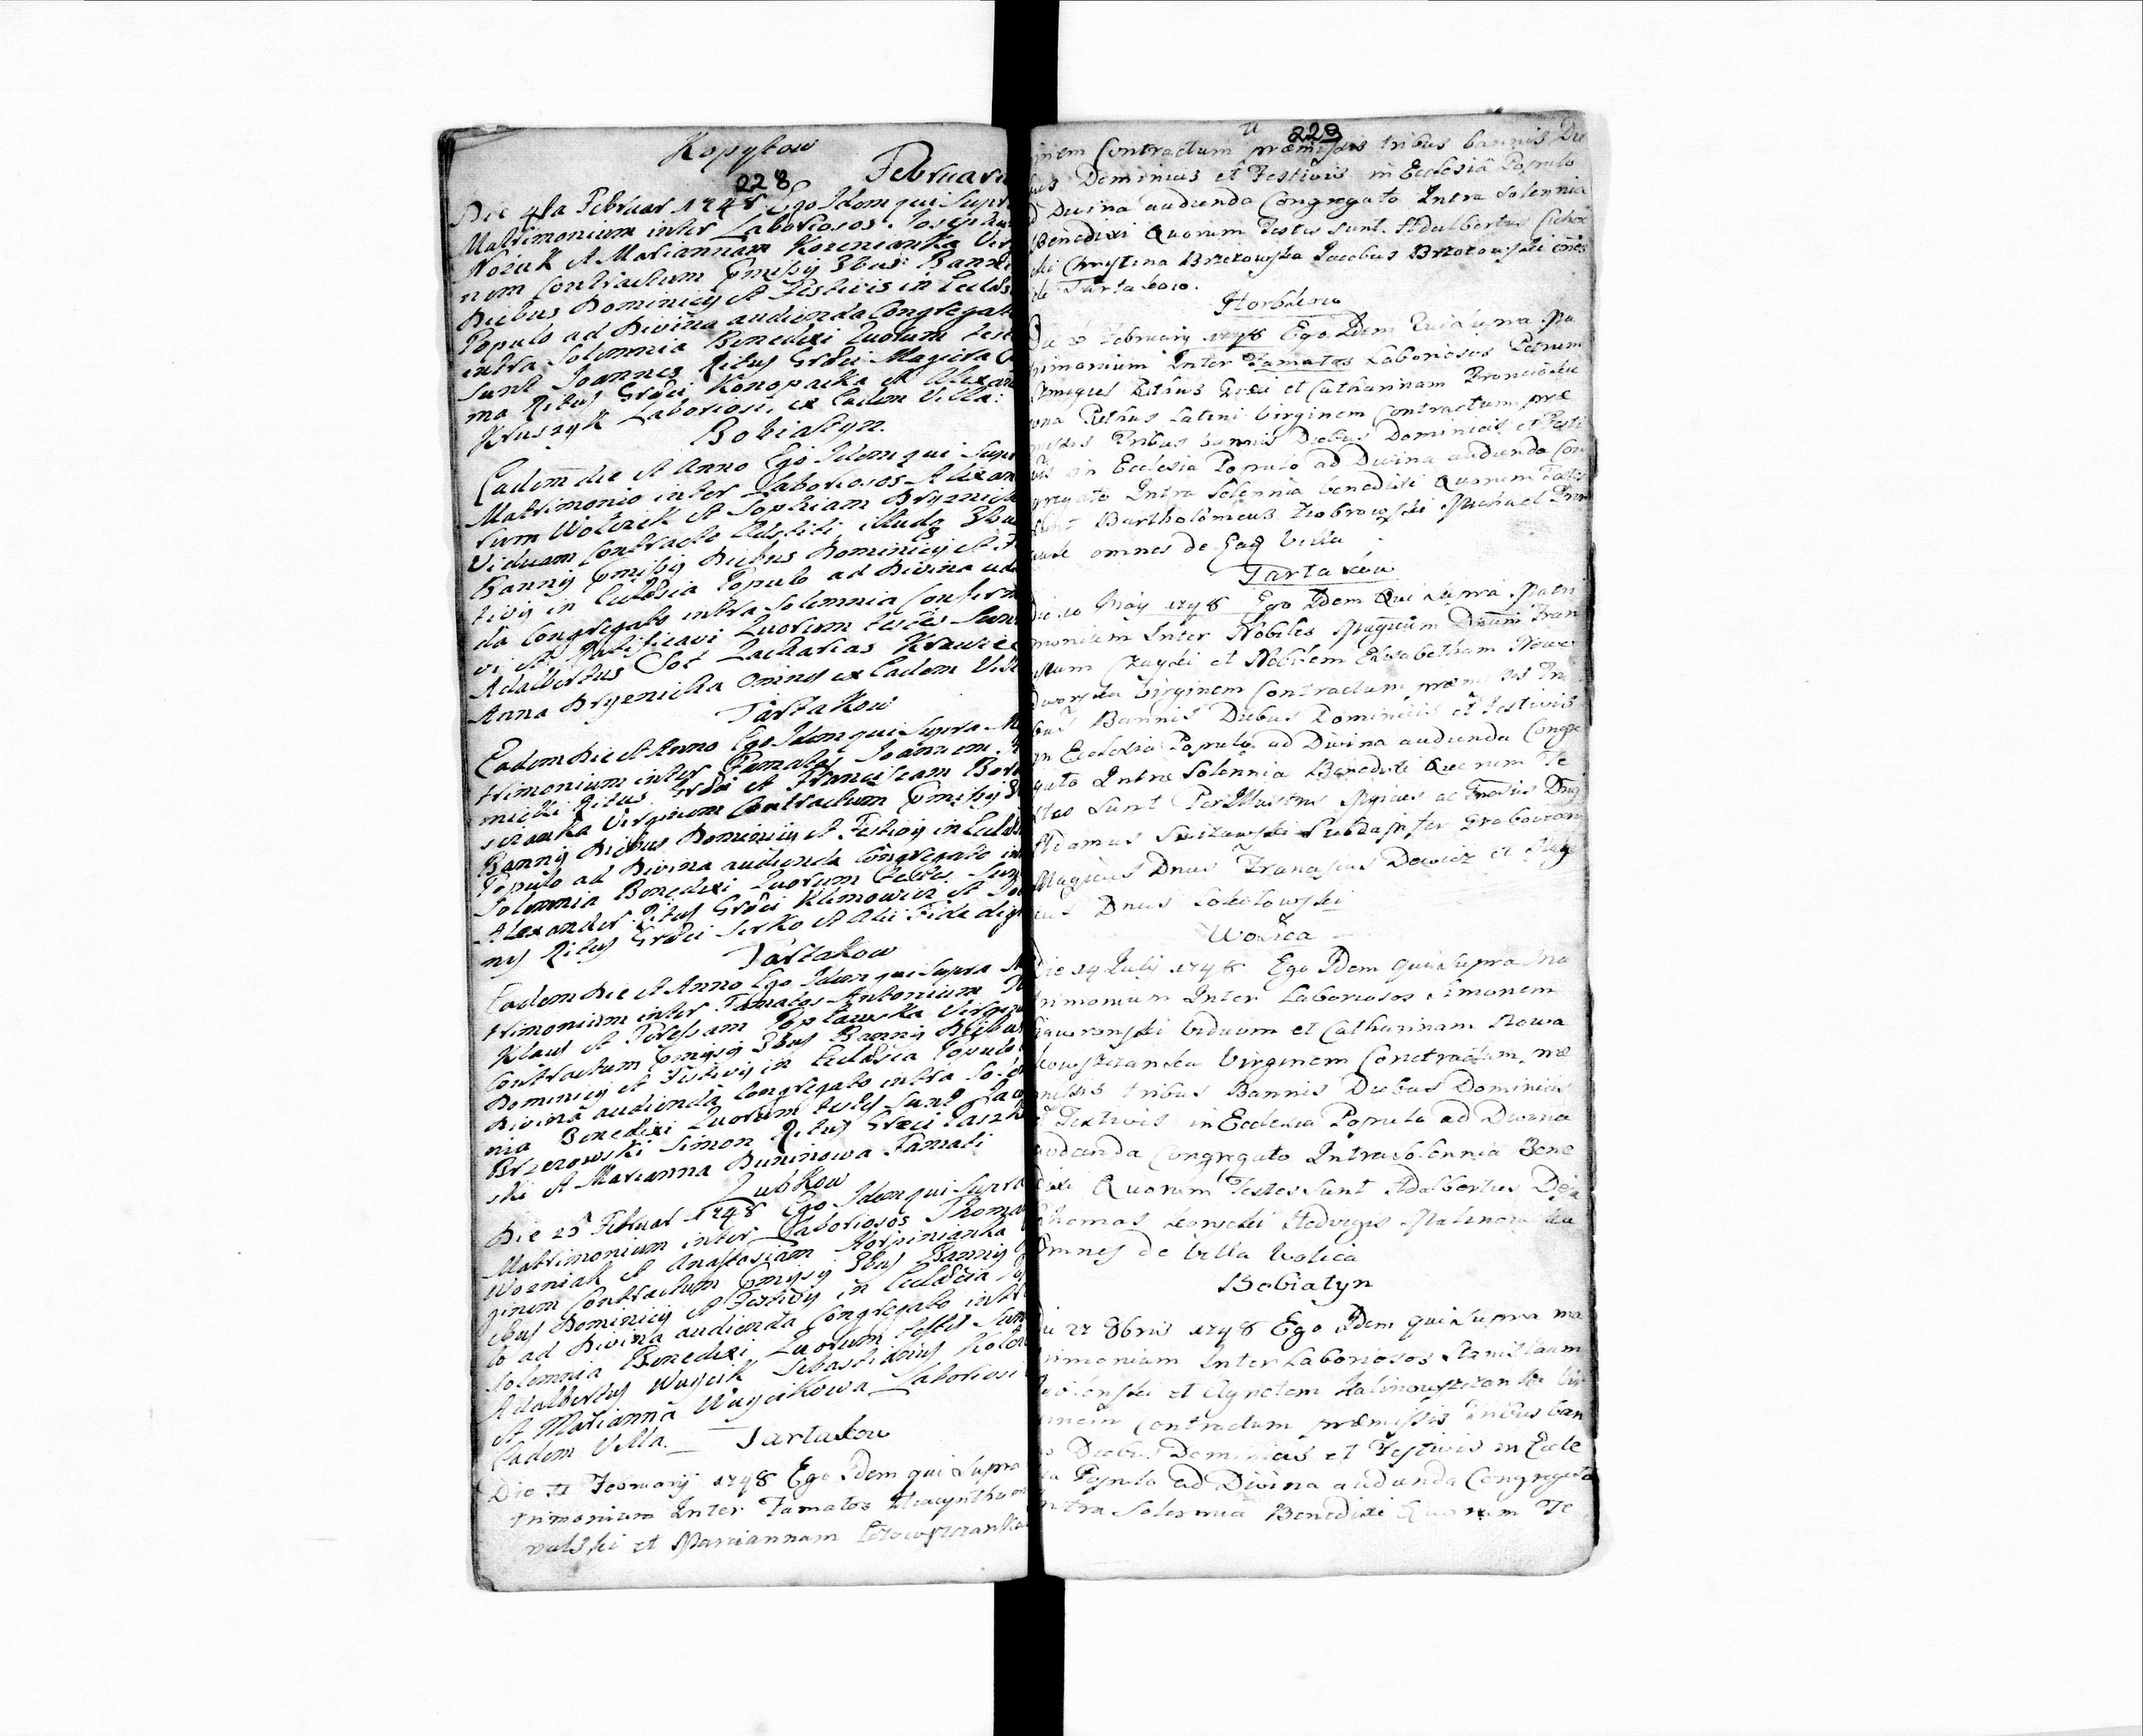 Kopytow
228
Februarii
Die 4ta Februar 1748 Ego Idem qui Supr
Matrimonium inter Laboriosos Josephum
Noziuk et Mariannam Korenianka Vir
nem Contractum Pmissis 3bus Banni
Diebus Dominicis et Festivis in Eccles
Populo ad Divina audienda Congregat
intra Solemnia Benedixi Quorum test
sunt Joannes Ritus Graeci Magiera
ma Ritus Graeci Konopacka et Alexan
Kruszyk Laboriosi ex Eadem Villa.
Bobiatyn
Eadem die et Anno Ego Idem qui Supr
Matrimonio inter Laboriosos Alexan
rum Wolczek et Sophiam Bryznick
Viduam Contracto illudq 3bus
Bannis Pmissis Diebus Dominicis et Fe
tivis in Ecclesia Populo ad Divina aud
da Congregato intra Solemnia Confirm
vi et Ratificavi Quorum testes sunt
Adalbertus Zacharias Krawiec
Anna Bryznicka Omnes ex Eadem Vill
Tartakow
Eadem Die et Anno Ego Idem qui Supra M
trimonium inter Famatos Joannem
micki Ritus Graeci et Franciscam Bor
szczanka Virginem Contractum Pmissis 3
Bannis Diebus Dominicis et Festivis in Eccles
Populo ad Divina audienda Congregato in
Solemnia Benedixi Quorum Testes Sun
Alexander Ritus Graeci Klimowicz et
nes Ritus Graeci Serko et Alii Fide dig
Tartakow
Eadem Die et Anno Ego Idem qui Supra M
trimonium inter Famatos Antonium
Klaus et Teressam Poplawska Virgin
Contractum Pmissis 3bus Bannis Diebus
Dominicis et Festivis in Ecclesia Populo
Divina audienda Congregato intra Solem
nia Benedixi Quorum testes Sunt Jaco
Brzezowski Simon Ritus Graeci
ski et Marianna Buninowa Famati
Zubkow
Die 25 Februar 1748 Ego Idem qui Supra
Matrimonium inter Laboriosos Thomam
Wozniak et Anastasiam Horpinianka
ginem Contractum Pmissis 3bus Bannis
ebus Dominicis et Festivis in Ecclesia Pop
lo ad Divina audienda Congregato intr
Solemnia Benedixi Quorum testes Sun
Adalbertus Wuycik Sebastianus
et Marianna Wuycikowa Laboriosi
Eadem Villa.
Tartakow
Die Februarij 1748 Ego Idem qui Supra
trimonium Inter Famatos Hiacynthum
et Mariannam
229
inem Contractum præmissis tribus bannis Die
bus Dominicis et Festivis in Ecclesiâ Populo
d Divina audienda Congregato Intra Solennia
Benedixi Quorum Testes sunt Adalbertus
ski Chrystina Brzezowska Jacobus Brzozowski omnes
de Tartakow.
Horbkow
Die Februarij 1748 Ego Idem Qui Supra Ma
trimonium Inter Famatos Laboriosos Petrum
Ritus Græci et Catharinam
Rithus Latini Virginem Contractum præ
missis Tribus bannis Diebus Dominicis et Festi
vis in Ecclesia Populo ad Divina audienda Con
gregato Intra Solennia benedixi Quorum Testes
sunt Bartholomeus Zrobrowski Michael
omnes de Eaq Villa
Tartakow
Die 10 Maij 1748 Ego Idem Qui Supra Matri
monium Inter Nobiles Magcum Dnum Fran
ciscum Czayski et Nobilem Elisabetham Nowo
dworska Virginem Contractum præmissis Tri
bus Bannis Diebus Dominicis et Festivis
in Ecclesia Populo ad Divina audienda Congre
gato Intra Solennia Benedixi Quorum Te
stes Sunt PerIllustris Mgicus ac Gnosus Dnus
Adamus Subdapifer Grabovien
Magicus Dnus Franciscus Dewicz et Mag
cus Dnus Sokolowski
Wolica
Die 14 Julij 1748 Ego Idem qui Supra Ma
trimonium Inter Laboriosos Simonem
Gawronski Viduum et Catharinam Nowa
kowszczanka Virginem Contractum præ
missis tribus Bannis Diebus Dominicis
et Festivis in Ecclesia Populo ad Divina
audienda Congregato Intra Solennia Bene
dixi Quorum Testes Sunt Adalbertus
Thomas Hedvigis Malinowska
Omnes de Villa Wolica
Bobiatyn
Die 27 8bris 1748 Ego Idem qui Supra ma
trimonium Inter Laboriosos Stanislaum
et Agnetem Kalinowszczanka Vir
ginem Contractum præmissis Tribus ban
is Diebus Dominicis et Festivis in Eccle
sia Populo ad Divina audienda Congregato
Intra Solennia Benedixi Quorum Te